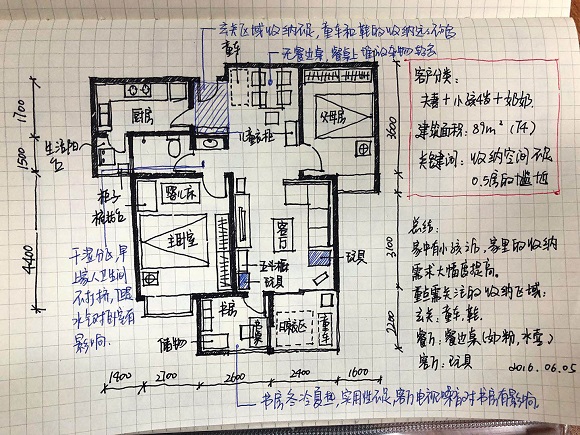 玄关区域收纳不足,童车和鞋的收纳远不够
童车
无餐边桌,餐桌上堆的杂物较多
客户分类:
夫妻+小孩4岁+奶奶
建筑面积:89m²(T4)
关键词:收纳空间不足
0.5房的尴尬
厨房
父母房
生活阳台
柜子
婴儿床
主卧室
客厅
玩具
玩具
书房
童车
储物
干湿分区,早
上家人卫生间
不打挤,卫生间
水气对卧室有
影响.
总结:
家中有小孩之后,家里的收纳
需求大幅度提高.
重点需关注的收纳区域:
玄关:童车,鞋.
客厅:餐边桌(奶粉,水壶)
客厅:玩具
2016.06.05
书房冬冷夏热,实用性不足,客厅电视噪音对书房有影响.
1700
1500
4400
3600
3100
2200
1400
2700
2600
2400
1600